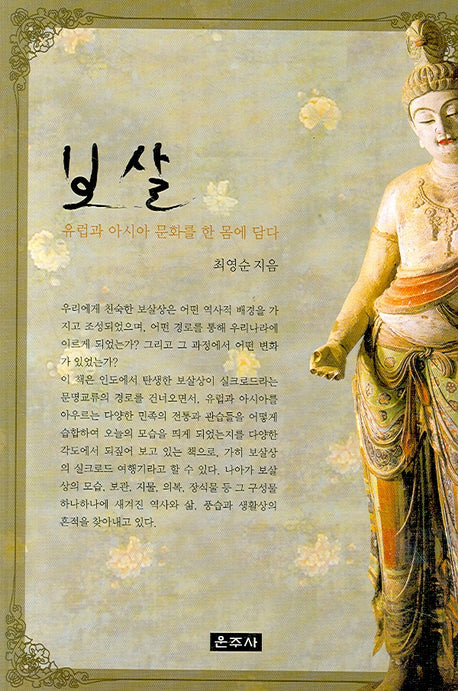 보살
유럽과 아시아 문화를 한 몸에 담다
최영순 지음
우리에게 친숙한 보살상은 어떤 역사적 배경을 가
지고 조성되었으며, 어떤 경로를 통해 우리나라에
이르게 되었는가? 그리고 그 과정에서 어떤 변화
가 있었는가?
이 책은 인도에서 탄생한 보살상이 실크로드라는
문명교류의 경로를 건너오면서, 유럽과 아시아를
아우르는 다양한 민족의 전통과 관습들을 어떻게
습합하여 오늘의 모습을 띄게 되었는지를 다양한
각도에서 되짚어 보고 있는 책으로, 가히 보살상
의 실크로드 여행기라고 할 수 있다. 나아가 보살
상의 모습, 보관, 지물, 의복, 장식물 등 그 구성물
하나하나에 새겨진 역사와 삶, 풍습과 생활상의
흔적을 찾아내고 있다.
운주사